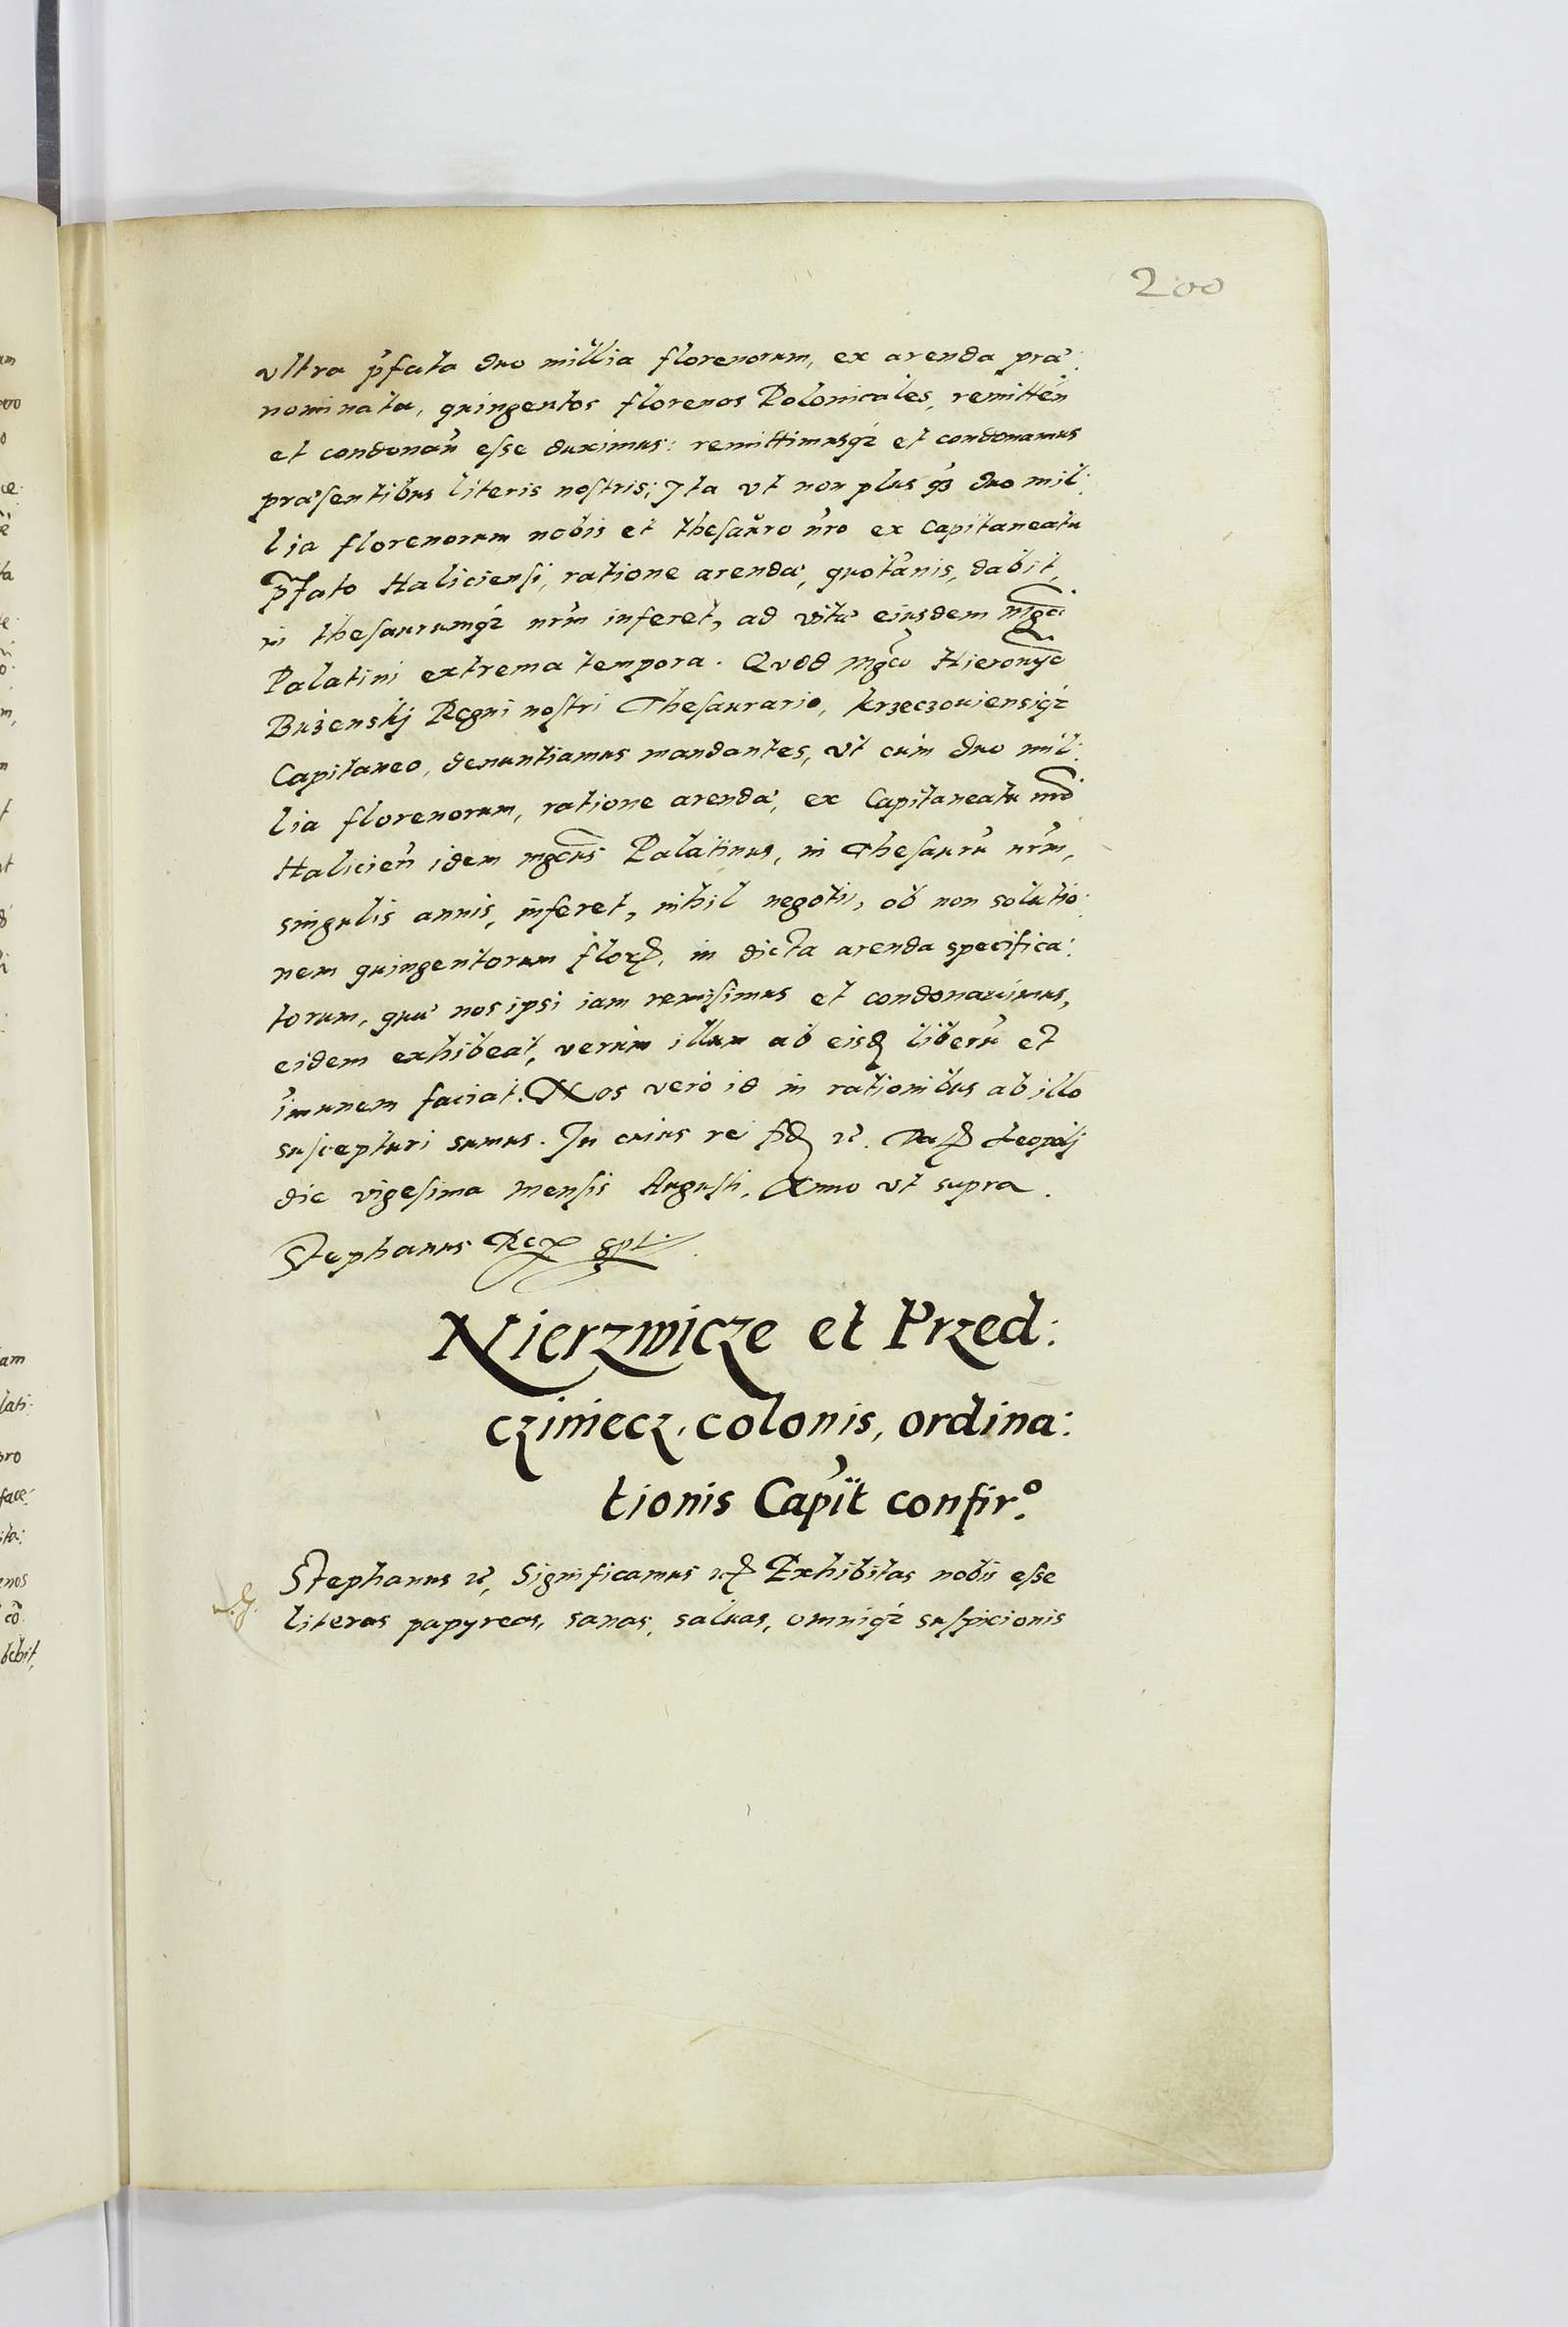 200
vltra p̃fata duo millia florenorum, ex arenda præ:
nominata, quingentos florenos Polonicales, remitteñ
et condonañ esse duximus: remittimusq₃ et condonamus
præsentibus literis nostris; Ita vt non plus q̃ duo mil:
lia florenorum nobis et thesauro ñro ex Capitaneatu
p̃fato Haliciensi, ratione arendæ, quotãnis, dabit,
in thesaurumq₃ nr̃m inferet, ad vitæ eiusdem Mgc̃i
Palatini extrema tempora. Quod Mgc̃o Hieronyõ
Buzenskj Regni nostri Thesaurario, krzeczouiensiq₃
Capitaneo, denuntiamus mandantes, vt cum duo mil:
lia florenorum, ratione arendæ, ex Capitaneatu nr̃o
Halicień idem mgc̃us Palatinus, in Thesaurũ nr̃m,
singulis annis, inferet, nihil negotii, ob non solutio:
nem quingentorum flor, in dicta arenda specifica:
torum, quæ nos ipsi iam remisimus et condonauimus,
eidem exhibeat, verum illum ab eisd liberũ et
ĩmunem faciat. Nos vero id in rationibus ab illo
suscepturi sumus. In cuius rei fid etc. Dat Leopolj
die vigesima Mensis Augusti, Anno vt supra.
Stephanus Rex spt.
Nierzwicze et Przed:
cziniecz, colonis, ordina:
tionis Capi͂t confir.º
Stephanus etc, Significamus etc Exhibitas nobis esse
literas papyreas, sanas, saluas, omniq₃ suspicionis